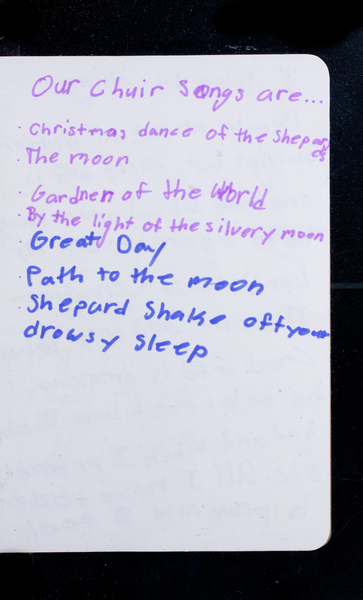 Our Chuir Songs are...
· Christmas dance of the Shepards
· The moon
· Gardnen of the World
· By the light of the silvery moon
Great Day
· Path to the moon
· Shepard Shake off your
drowsy Sleep